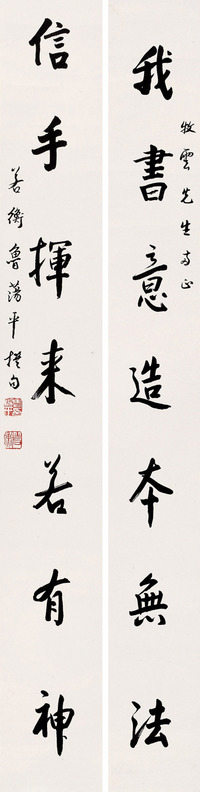 牧雲先生方正
我書意造本無法
信手揮来若有神
若衡魯蕩平撰句